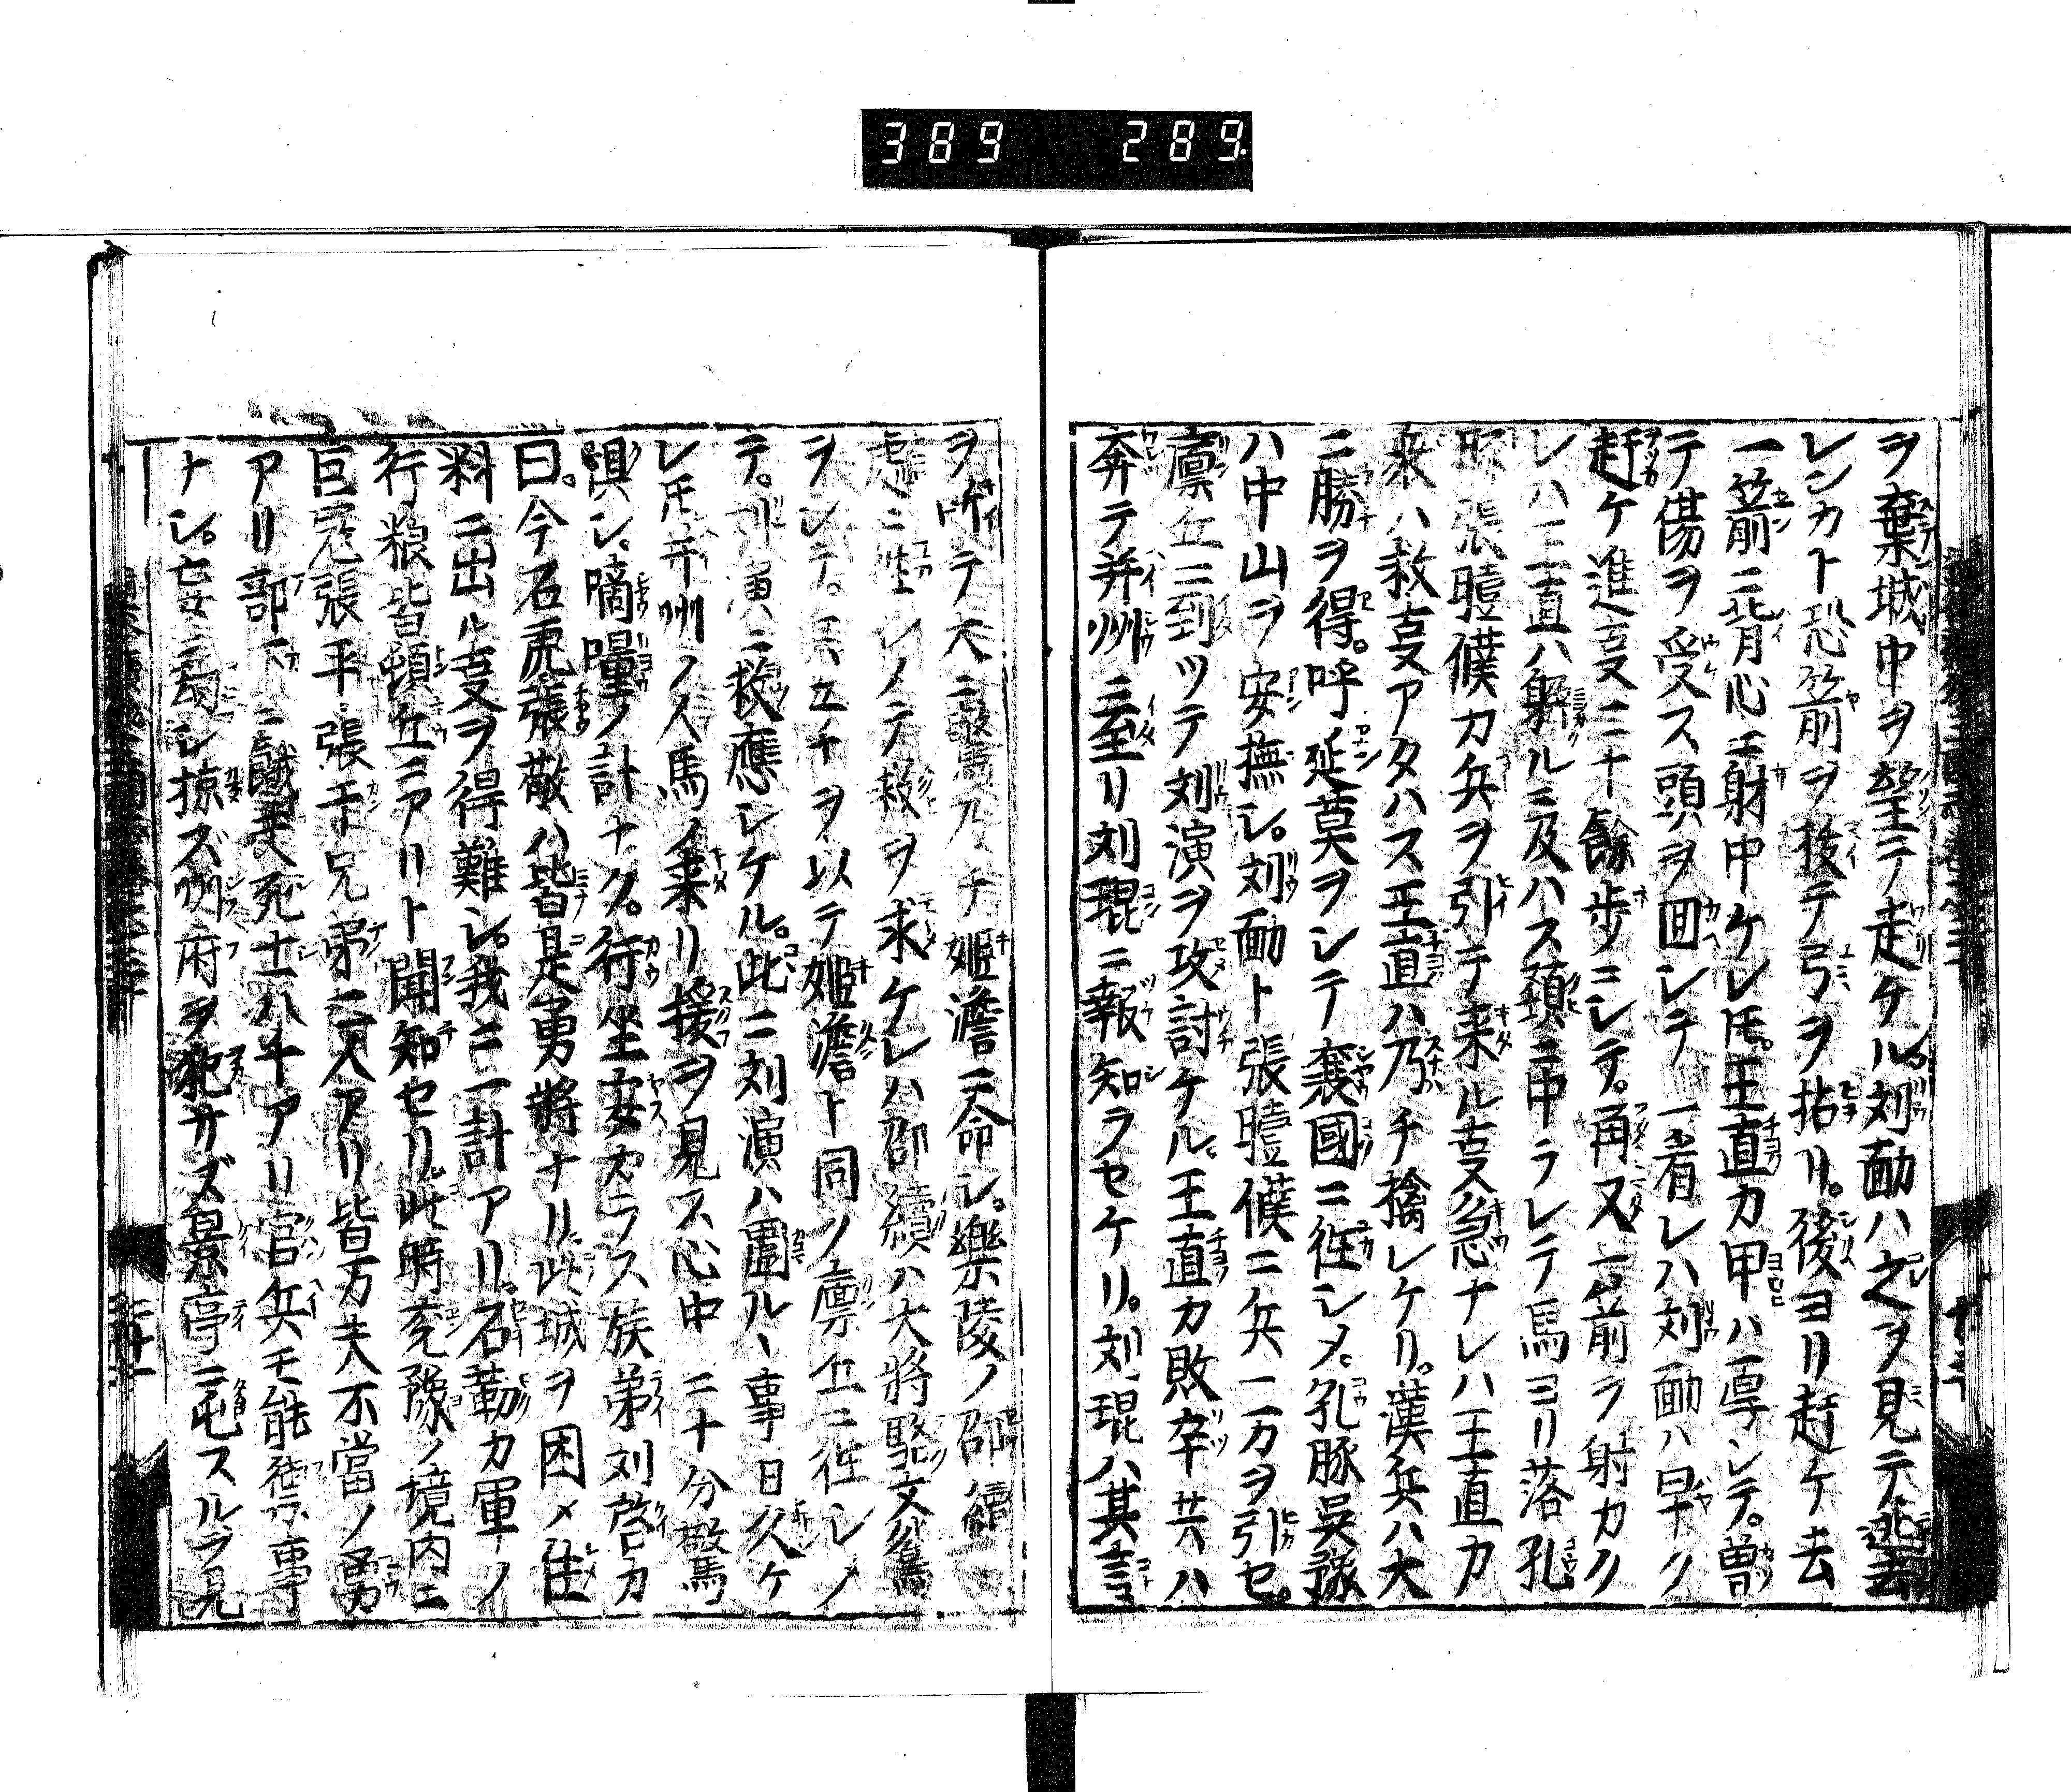 389 289
ヲ棄城中ヲ望テ走ケル。刘勔ハ之ヲ見テ逃去
レンカト恐箭ヲ抜テ弓ヲ拈リ。後ヨリ赶ケ去
一箭ニ背心ニ射中ケレ𪜈。王直カ甲ハ厚シテ。曽
テ傷ヲ受ス頭ヲ回シテ一看レハ刘勔ハ早ク
赶ケ進叓三十餘歩ニシテ。再又一箭ヲ射カク
レハ王直ハ躱ルニ及ハス頚ニ中ラレテ馬ヨリ落孔
豚張曀僕カ兵ヲ引テ来ル叓急ナレハ王直カ
衆ハ救叓アタハス王直ハ乃チ擒レケリ。漢兵ハ大
ニ勝ヲ得。呼延莫ヲシテ襄國ニ徃シメ。孔豚呉豫
ハ中山ヲ安撫シ。刘勔ト張曀僕ニ兵一万ヲ引セ。
廪丘ニ到ツテ刘演ヲ攻討ケル。王直カ敗卒共ハ
奔テ并州ニ至リ刘琨ニ報知ラセケリ。刘琨ハ其言
ヲ听テ大ニ驚乃チ姫澹ニ命シ。樂陵ノ邵續
處ニ徃シメテ救ヲ求ケレハ邵續ハ大將駱文鴦
ヲシテ。兵五千ヲ以テ姫澹ト同ノ廪丘ニ徃シメ
テ。刘演ニ救應シケル。此ニ刘演ハ圍ル丶事日久ケ
レ𪜈并州ノ人馬ノ来リ援ヲ見ス心中ニ十分驚
惧シ。嘀嚁ノ計ナク。行坐安カラス族弟刘啓カ
曰。今石虎張敬ハ皆是勇將ナリ此城ヲ困メ住
料ニ出ル叓ヲ得難シ。我ニ一計アリ。石勒カ軍ノ
行粮皆頓丘ニアリト聞知セリ。此時兖豫ノ境内ニ
巨冦張平張干兄弟二人アリ皆万夫不當ノ勇
アリ部下ニ賊叓死士八千アリ官兵モ能
ナシ。 掠ズ州府ヲ犯サズ景亭ニ屯スルヲ見